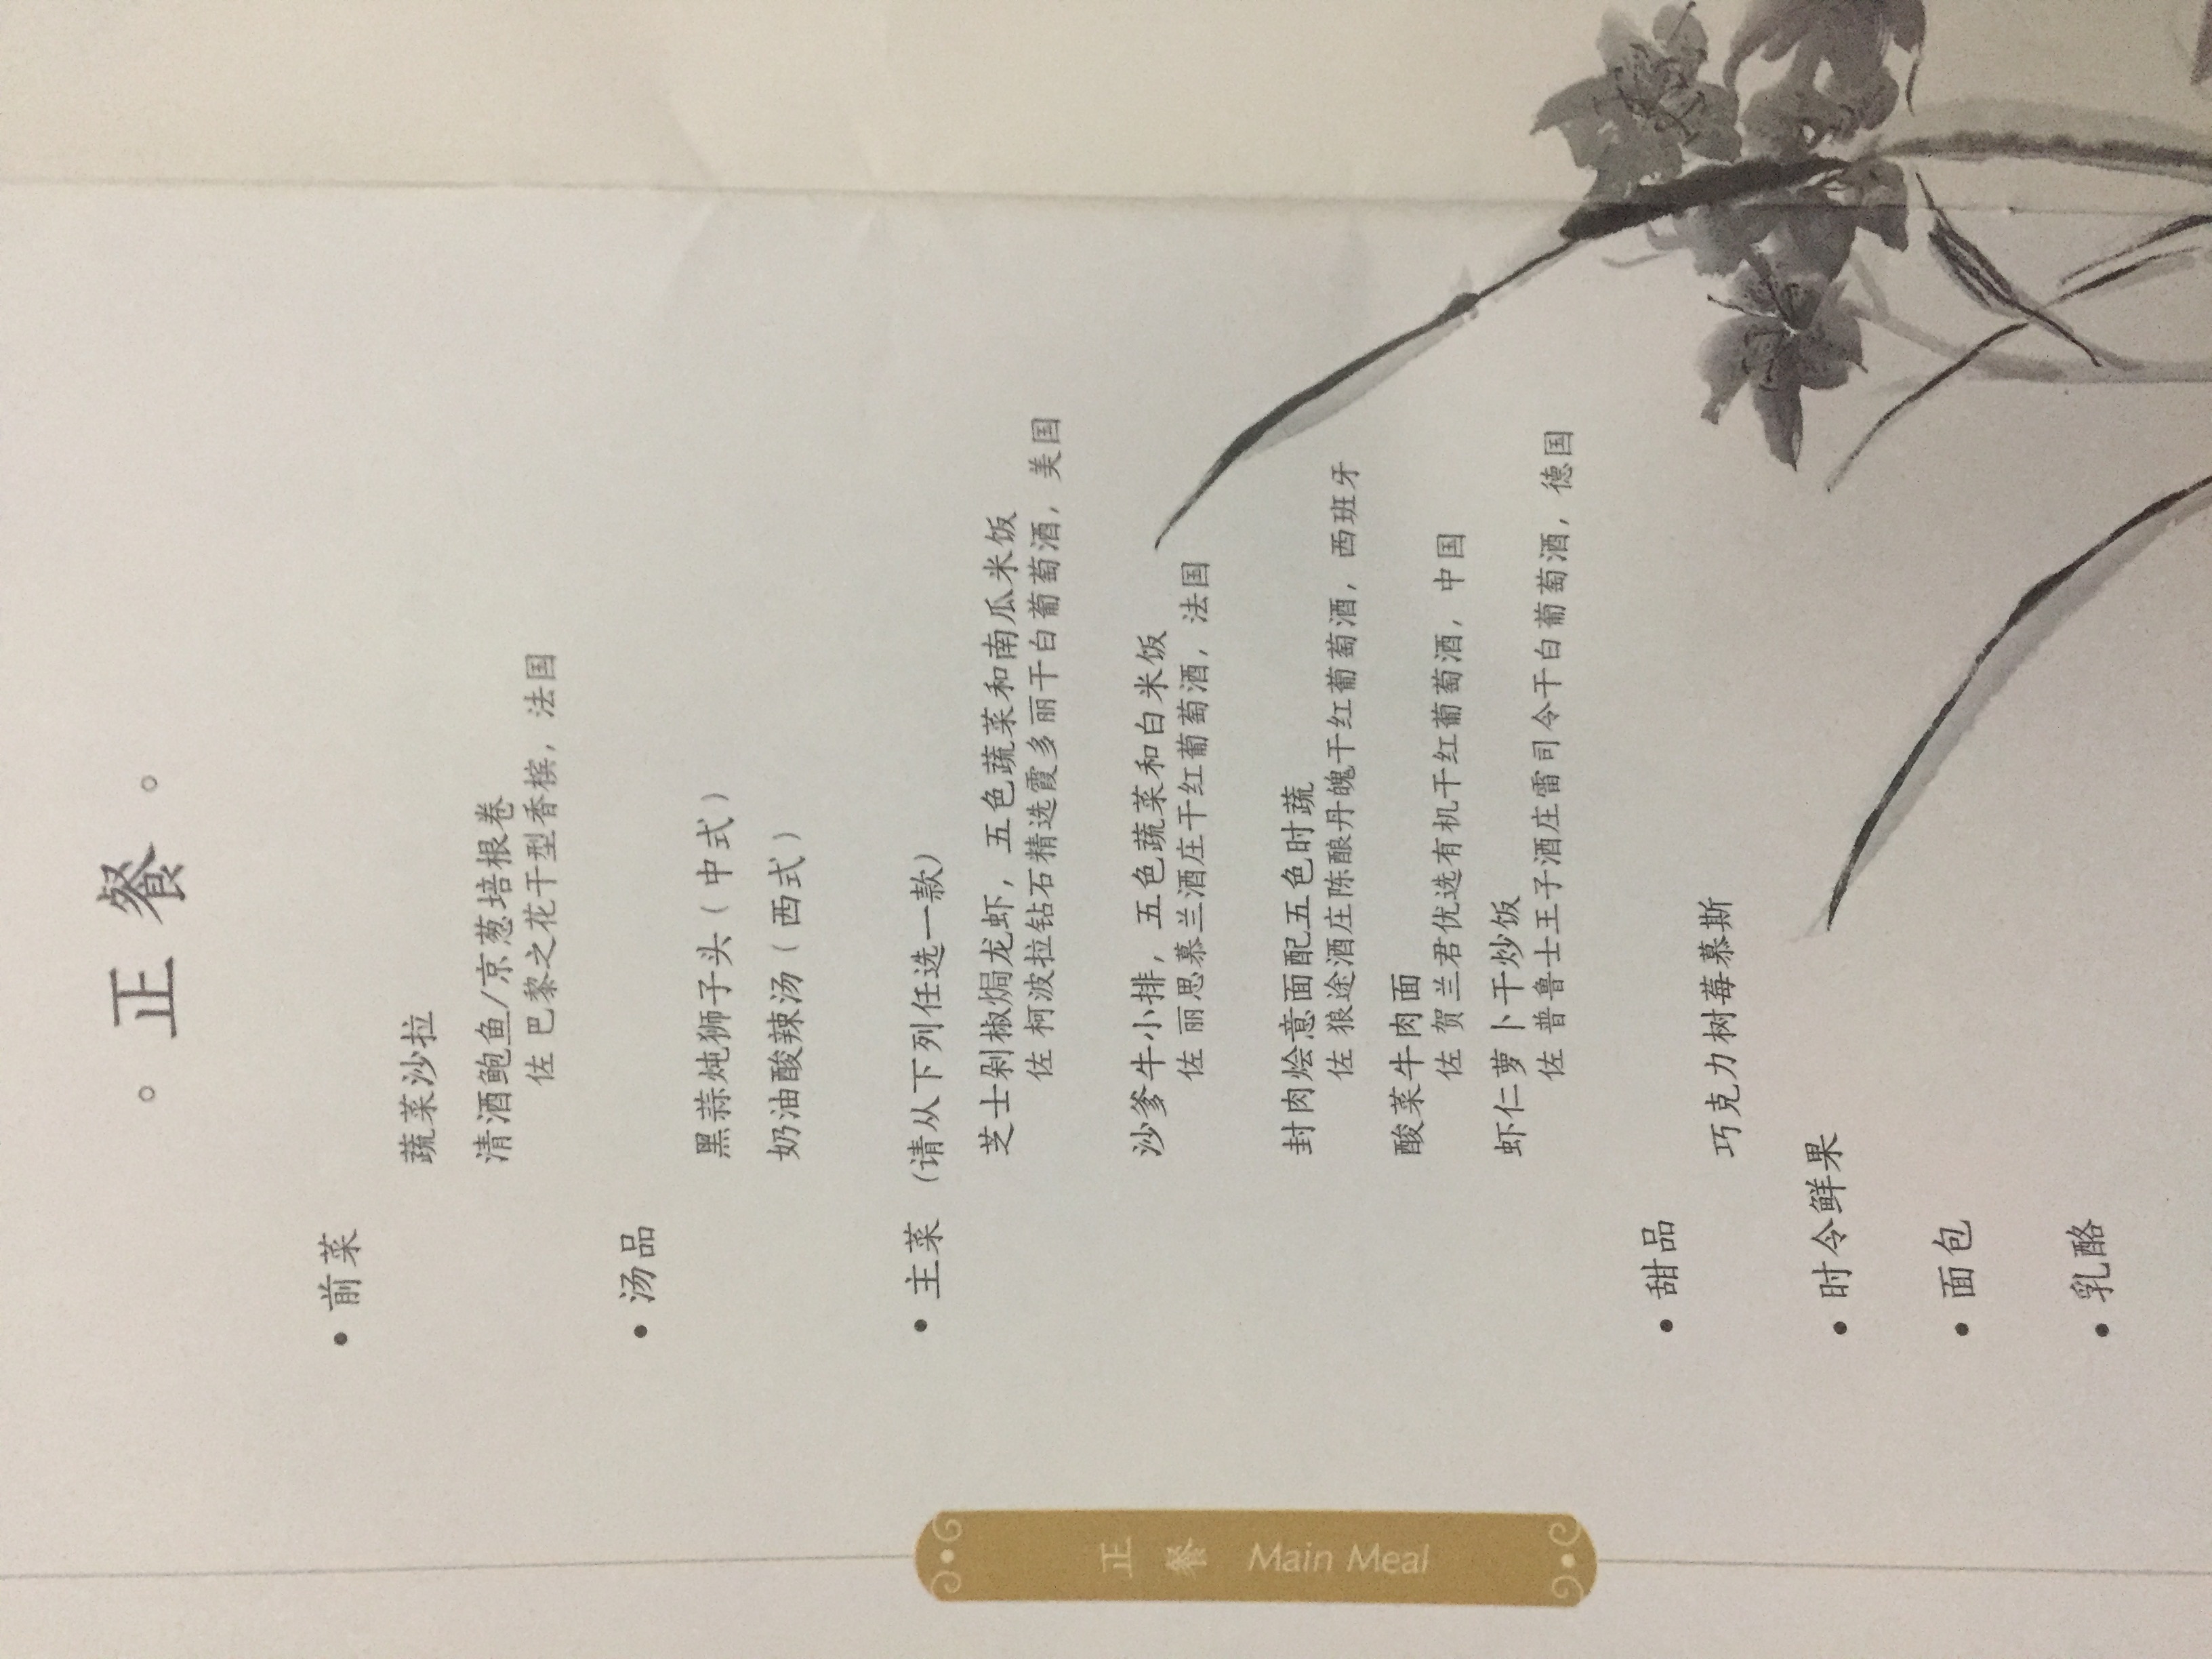 。正 餐。
• 前菜
蔬菜沙拉
清酒鲍鱼/京葱培根卷
佐 巴黎之花干型香槟，法国
• 汤品
黑蒜炖狮子头（中式）
奶油酸辣汤（西式）
• 主菜 （请从下列任选一款）
芝士剁椒焗龙虾，五色蔬菜和南瓜米饭
佐 柯波拉钻石精选霞多丽干白葡萄酒，美国
沙爹牛小排，五色蔬菜和白米饭
佐 丽思慕兰酒庄干红葡萄酒，法国
封肉烩意面配五色时蔬
佐 狼途酒庄陈酿丹魄干红葡萄酒，西班牙
酸菜牛肉面
佐 贺兰君优选有机干红葡萄酒，中国
虾仁萝卜干炒饭
佐 普鲁士王子酒庄雷司令干白葡萄酒，德国
• 甜品
巧克力树莓慕斯
• 时令鲜果
• 面包
• 乳酪
正餐 Main Meal